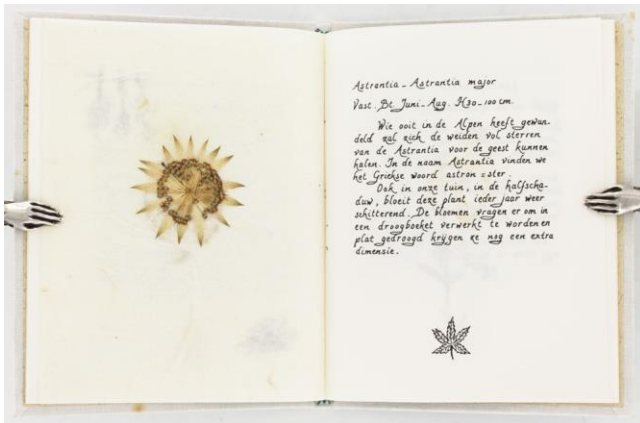 Astrantia - Astrantia major
Vast. Bt. Juni - Aug. H 30 - 100 cm.
Wie ooit in de Alpen heeft gewan-
deld zal zich de weiden vol sterren
van de Astrantia voor de geest kunnen
halen. In de naam Astrantia vinden we
het Griekse woord astron = ster.
Ook in onze tuin, in de halfscha-
duw, bloeit deze plant ieder jaar weer
schitterend. De bloemen vragen er om in
een droogboeket verwerkt te worden en
plat gedroogd krijgen ze nog een extra
dimensie.